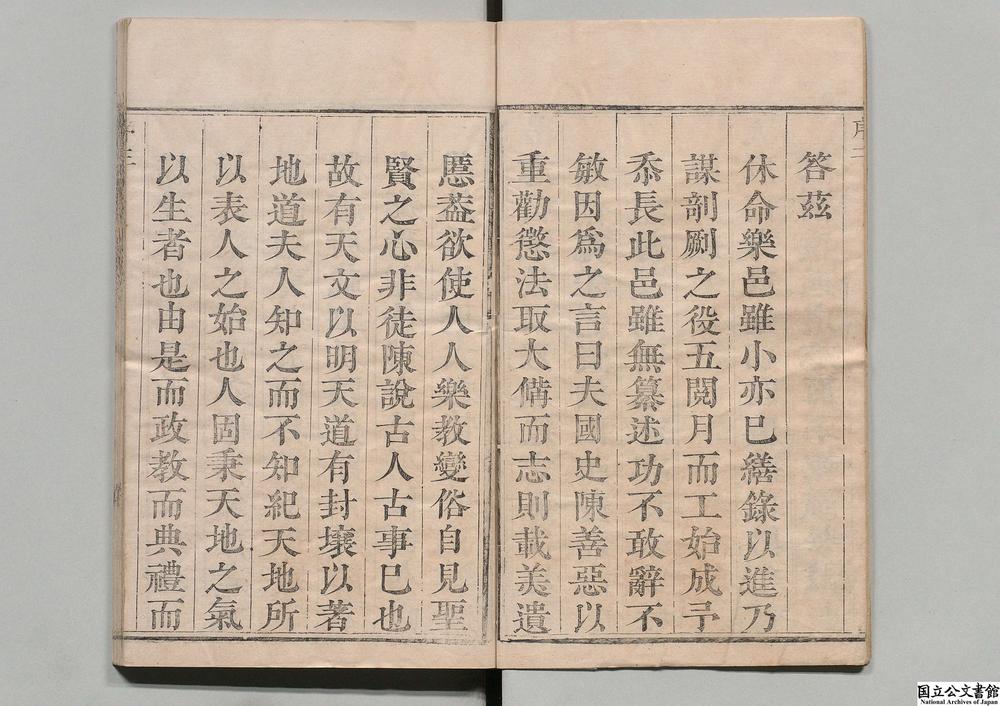 序二
答茲
休命樂邑雖小亦已繕錄以進乃
謀剞劂之役五閱月而工始成予
忝長此邑雖無纂述功不敢辭不
敏因爲之言曰夫國史陳善惡以
重勸懲法取大備而志則載美遺
慝葢欲使人人樂教變俗自見聖
賢之心非徒陳說古人古事已也
故有天文以明天道有封壤以著
地道夫人知之而不知紀天地所
以表人之始也人固秉天地之氣
以生者也由是而政教而典禮而
国立公文書館
National Archives of Japan